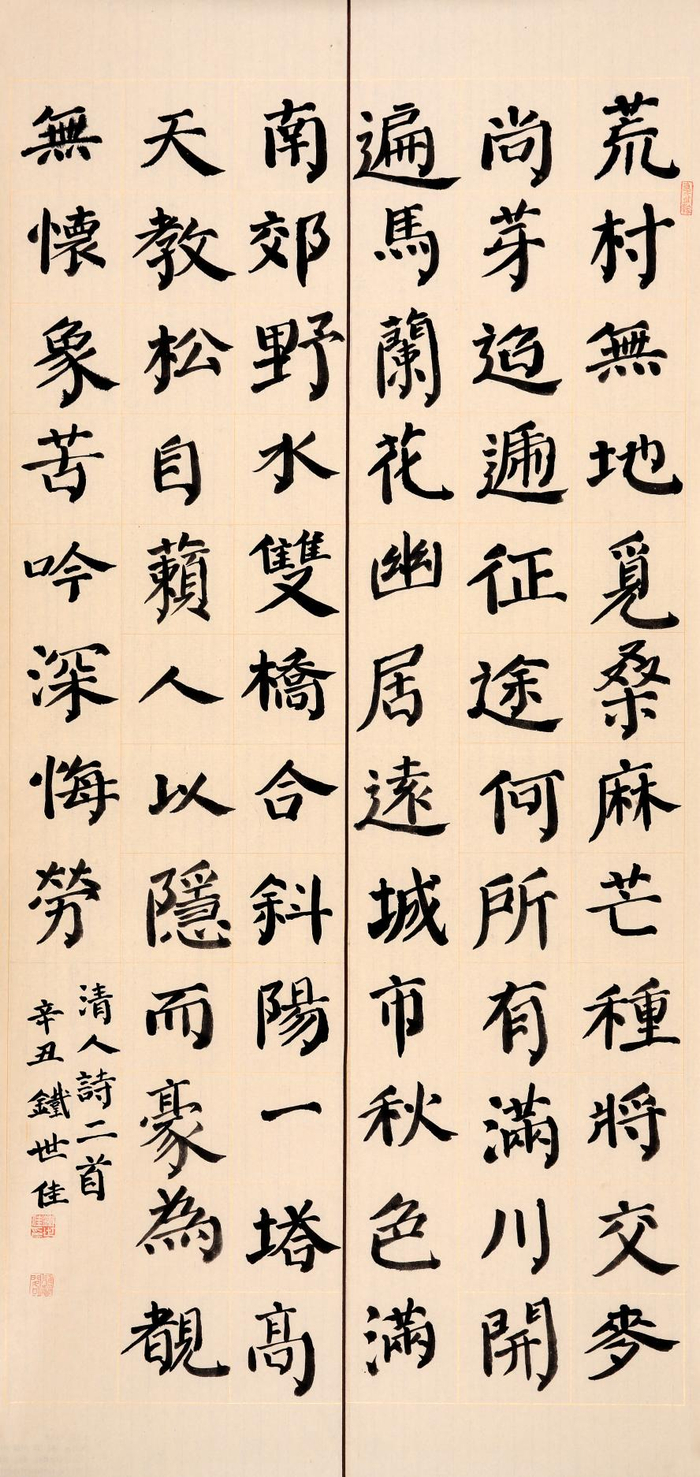 荒村無地覓桑麻芒種將交麥
尚芽迢遞征途何所有滿川開
遍馬蘭花幽居遠城市秋色滿
南郊野水雙橋合斜陽一塔高
天教松自籟人以隱而豪為覩
無懷象苦吟深悔勞
清人詩二首
辛丑鐵世佳